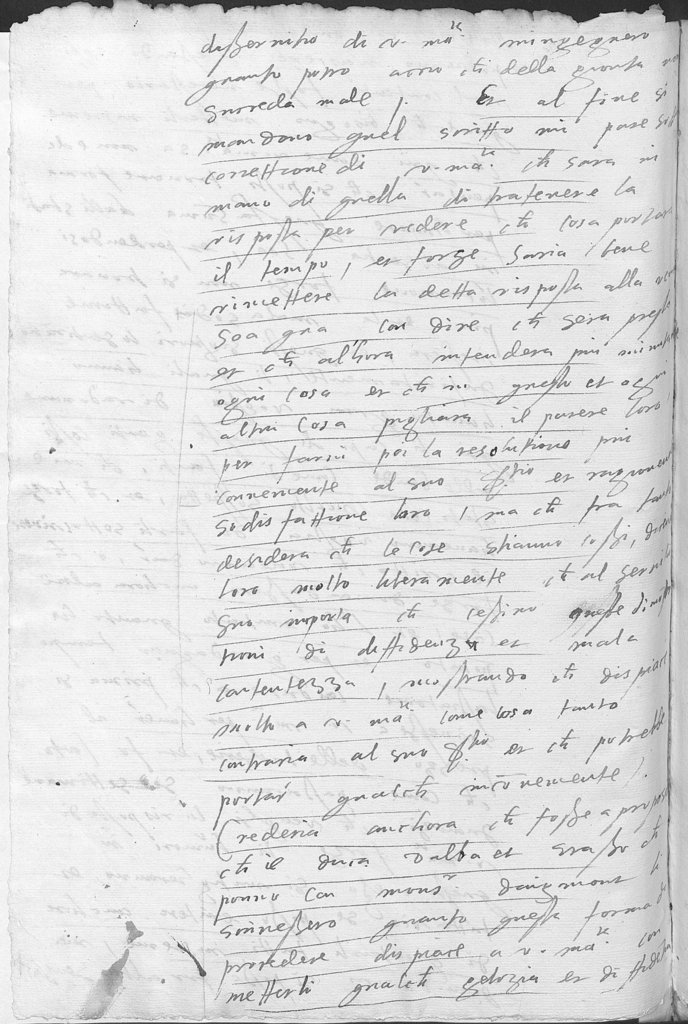 disservitio di v. ma.ta m'ingegnero
quanto posso accio ch della gionta
succeda male /. Et al fine si
mandano quel scritto mi pare
correttione di v. ma.ta ch sara in
mano di quella di tratenere la
risposta per vedere ch cosa portara
il tempo, et forse saria bene
rimettere la detta risposta alla
soa con dire ch sera presto
et ch alhora intendera piu
ogni cosa et ch in questo et ogni
altra cosa pigliara il parere loro
per farsi poi la resolutione piu
conveniente al suo s.tio et
sodisfattione loro, ma ch fra tanto
desidera ch le cose stianno cossi,
loro molto liberamente ch al servitio
suo importa ch cessino queste
tioni di diffidenza et mala
contentezza, mostrando ch dispiace
molto a v. ma.ta come cosa tanto
contraria al suo s.tio et ch potrebbe
portar qualch inconveniente /.
Crederia anchora ch fosse a proposito
ch il duca d'alba et Erasso ch
ponno con mons.r daigmont li
scrivessero quanto questa forma di
procedere dispiace a v. ma.ta con
metterli qualch gelozia et